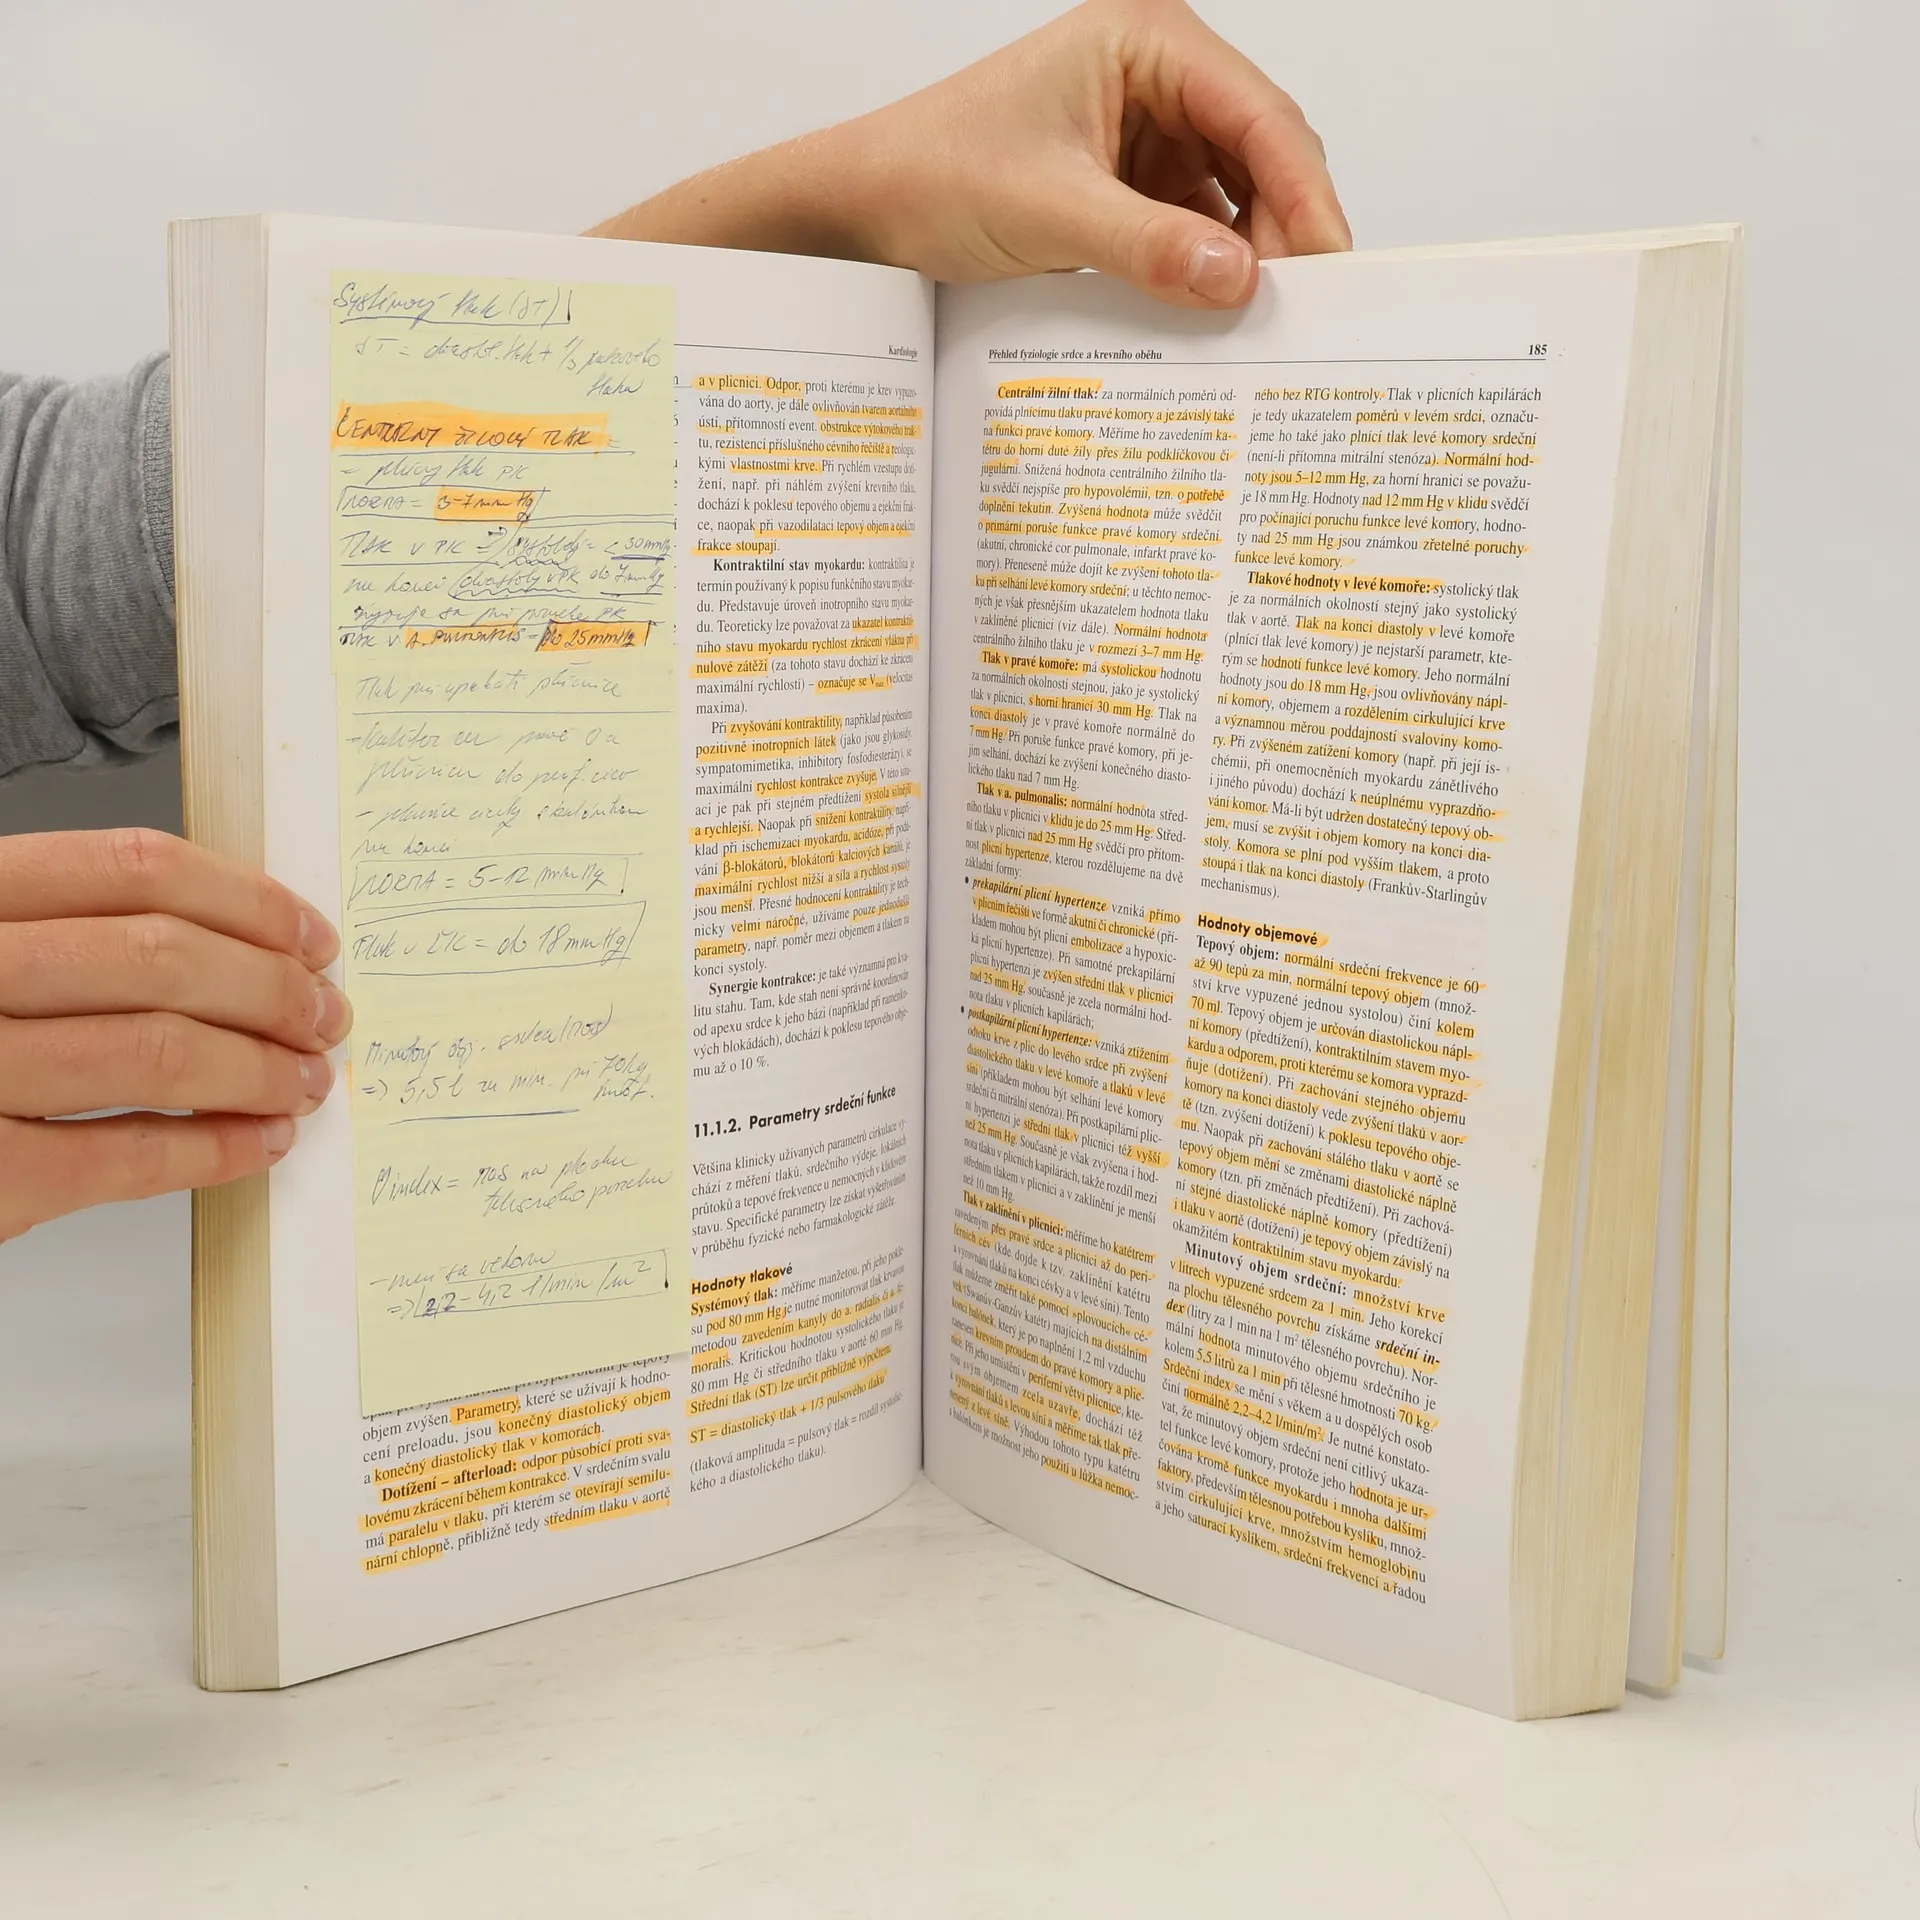 Systémový tlak (ST)
ST = diastol. tlak + 1/3 pulsového
tlaku
CENTRÁLNÍ ŽILOVÝ TLAK =
= plnící tlak PK
NORMA = 3-7 mm Hg
TLAK V PK = systoly = < 30 mmHg
na konci diastoly v PK do 7 mmHg
TLAK V A. PULMONALIS = do 25 mmHg
Tlak při
NORMA = 5-12 mm Hg
Tlak v LK = do 18 mm Hg
Minutový obj. srdca (MOS)
=> 5,5 l za min. pri 70 kg
index = MOS na plochu
telesného povrchu
- mení sa vekom
=> 2,2 - 4,2 l/min/m²
objem zvýšen. Parametry, které se užívají k hodno-
cení preloadu, jsou konečný diastolický objem
a konečný diastolický tlak v komorách.
Dotížení – afterload: odpor působící proti sva-
lovému zkrácení během kontrakce. V srdečním svalu
má paralelu v tlaku, při kterém se otevírají semilu-
nární chlopně, přibližně tedy středním tlaku v aortě
Kardiologie
a v plicnici. Odpor, proti kterému je krev vypuzo-
vána do aorty, je dále ovlivňován tvarem aortálního
ústí, přítomností event. obstrukce výtokového trak-
tu, rezistencí příslušného cévního řečiště a reologic-
kými vlastnostmi krve. Při rychlém vzestupu dotí-
žení, např. při náhlém zvýšení krevního tlaku,
dochází k poklesu tepového objemu a ejekční frak-
ce, naopak při vazodilataci tepový objem a ejekční
frakce stoupají.
Kontraktilní stav myokardu: kontraktilita je
termín používaný k popisu funkčního stavu myokar-
du. Představuje úroveň inotropního stavu myokar-
du. Teoreticky lze považovat za ukazatel kontraktil-
ního stavu myokardu rychlost zkrácení vlákna při
nulové zátěži (za tohoto stavu dochází ke zkrácení
maximální rychlostí) – označuje se Vmax (velocitas
maxima).
Při zvyšování kontraktility, například působením
pozitivně inotropních látek (jako jsou glykosidy,
sympatomimetika, inhibitory fosfodiesterázy), se
maximální rychlost kontrakce zvyšuje. V této situ-
aci je pak při stejném předtížení systola silnější
a rychlejší. Naopak při snížení kontraktility, např.
klad při ischemizaci myokardu, acidóze, při podá-
vání β-blokátorů, blokátorů kalciových kanálů, je
maximální rychlost nižší a síla a rychlost systoly
jsou menší. Přesné hodnocení kontraktility je tech-
nicky velmi náročné, užíváme pouze jednodušší
parametry, např. poměr mezi objemem a tlakem na
konci systoly.
Synergie kontrakce: je také významná pro kva-
litu stahu. Tam, kde stah není správně koordinován
od apexu srdce k jeho bázi (například při raménko-
vých blokádách), dochází k poklesu tepového obje-
mu až o 10 %.
11.1.2. Parametry srdeční funkce
Většina klinicky užívaných parametrů cirkulace vy-
chází z měření tlaků, srdečního výdeje, lokálních
průtoků a tepové frekvence u nemocných v klidovém
stavu. Specifické parametry lze získat vyšetřováním
v průběhu fyzické nebo farmakologické zátěže.
Hodnoty tlakové
Systémový tlak: měříme manžetou, při jeho pokle-
su pod 80 mm Hg je nutné monitorovat tlak krvavou
metodou zavedením kanyly do a. radialis či a. fe-
moralis. Kritickou hodnotou systolického tlaku je
80 mm Hg či středního tlaku v aortě 60 mm Hg.
Střední tlak (ST) lze určit přibližně výpočtem:
ST = diastolický tlak + 1/3 pulsového tlaku
(tlaková amplituda = pulsový tlak = rozdíl systolic-
kého a diastolického tlaku).
Přehled fyziologie srdce a krevního oběhu
185
Centrální žilní tlak: za normálních poměrů od-
povídá plnícímu tlaku pravé komory a je závislý také
na funkci pravé komory. Měříme ho zavedením ka-
tétru do horní duté žíly přes žílu podklíčkovou či
jugulární. Snížená hodnota centrálního žilního tla-
ku svědčí nejspíše pro hypovolémii, tzn. o potřebě
doplnění tekutin. Zvýšená hodnota může svědčit
o primární poruše funkce pravé komory srdeční
(akutní, chronické cor pulmonale, infarkt pravé ko-
mory). Přeneseně může dojít ke zvýšení tohoto tla-
ku při selhání levé komory srdeční; u těchto nemoc-
ných je však přesnějším ukazatelem hodnota tlaku
v zaklíněné plicnici (viz dále). Normální hodnota
centrálního žilního tlaku je v rozmezí 3–7 mm Hg.
Tlak v pravé komoře: má systolickou hodnotu
za normálních okolností stejnou, jako je systolický
tlak v plicnici, s horní hranicí 30 mm Hg. Tlak na
konci diastoly je v pravé komoře normálně do
7 mm Hg. Při poruše funkce pravé komory, při je-
jím selhání, dochází ke zvýšení konečného diasto-
lického tlaku nad 7 mm Hg.
Tlak v a. pulmonalis: normální hodnota střed-
ního tlaku v plicnici v klidu je do 25 mm Hg. Střed-
ní tlak v plicnici nad 25 mm Hg svědčí pro přítom-
nost plicní hypertenze, kterou rozdělujeme na dvě
základní formy:
• prekapilární plicní hypertenze vzniká přímo
v plicním řečišti ve formě akutní či chronické (pří-
kladem mohou být plicní embolizace a hypoxic-
ká plicní hypertenze). Při samotné prekapilární
plicní hypertenzi je zvýšen střední tlak v plicnici
nad 25 mm Hg, současně je zcela normální hod-
nota tlaku v plicních kapilárách;
• postkapilární plicní hypertenze: vzniká ztížením
odtoku krve z plic do levého srdce při zvýšení
diastolického tlaku v levé komoře a tlaků v levé
síni (příkladem mohou být selhání levé komory
srdeční či mitrální stenóza). Při postkapilární plic-
ní hypertenzi je střední tlak v plicnici též vyšší
než 25 mm Hg. Současně je však zvýšena i hod-
nota tlaku v plicních kapilárách, takže rozdíl mezi
středním tlakem v plicnici a v zaklínění je menší
než 10 mm Hg.
Tlak v zaklínění v plicnici: měříme ho katétrem
zavedeným přes pravé srdce a plicnici až do peri-
ferních cév (kde dojde k tzv. zaklínění katétru
a vyrovnání tlaků na konci cévky a v levé síni). Tento
tlak můžeme změřit také pomocí »plovoucích« cé-
vek (Swanův-Ganzův katétr) majících na distálním
konci balónek, který je po naplnění 1,2 ml vzduchu
zanesen krevním proudem do pravé komory a plic-
nice. Při jeho umístění v periferní větvi plicnice, kte-
rou svým objemem zcela uzavře, dochází též
k vyrovnání tlaků s levou síní a měříme tak tlak pře-
nesený z levé síně. Výhodou tohoto typu katétru
s balónkem je možnost jeho použití u lůžka nemoc-
ného bez RTG kontroly. Tlak v plicních kapilárách
je tedy ukazatelem poměrů v levém srdci, označu-
jeme ho také jako plnící tlak levé komory srdeční
(není-li přítomna mitrální stenóza). Normální hod-
noty jsou 5–12 mm Hg, za horní hranici se považu-
je 18 mm Hg. Hodnoty nad 12 mm Hg v klidu svědčí
pro počínající poruchu funkce levé komory, hodno-
ty nad 25 mm Hg jsou známkou zřetelné poruchy
funkce levé komory.
Tlakové hodnoty v levé komoře: systolický tlak
je za normálních okolností stejný jako systolický
tlak v aortě. Tlak na konci diastoly v levé komoře
(plnící tlak levé komory) je nejstarší parametr, kte-
rým se hodnotí funkce levé komory. Jeho normální
hodnoty jsou do 18 mm Hg, jsou ovlivňovány nápl-
ní komory, objemem a rozdělením cirkulující krve
a významnou měrou poddajností svaloviny komo-
ry. Při zvýšeném zatížení komory (např. při její is-
chémii, při onemocněních myokardu zánětlivého
i jiného původu) dochází k neúplnému vyprazdňo-
vání komor. Má-li být udržen dostatečný tepový ob-
jem, musí se zvýšit i objem komory na konci dia-
stoly. Komora se plní pod vyšším tlakem, a proto
stoupá i tlak na konci diastoly (Frankův-Starlingův
mechanismus).
Hodnoty objemové
Tepový objem: normální srdeční frekvence je 60
až 90 tepů za min, normální tepový objem (množ-
ství krve vypuzené jednou systolou) činí kolem
70 ml. Tepový objem je určován diastolickou nápl-
ní komory (předtížení), kontraktilním stavem myo-
kardu a odporem, proti kterému se komora vyprazd-
ňuje (dotížení). Při zachování stejného objemu
komory na konci diastoly vede zvýšení tlaků v aor-
tě (tzn. zvýšení dotížení) k poklesu tepového obje-
mu. Naopak při zachování stálého tlaku v aortě se
tepový objem mění se změnami diastolické náplně
komory (tzn. při změnách předtížení). Při zachová-
ní stejné diastolické náplně komory (předtížení)
i tlaku v aortě (dotížení) je tepový objem závislý na
okamžitém kontraktilním stavu myokardu.
Minutový objem srdeční: množství krve
v litrech vypuzené srdcem za 1 min. Jeho korekcí
na plochu tělesného povrchu získáme srdeční in-
dex (litry za 1 min na 1 m² tělesného povrchu). Nor-
mální hodnota minutového objemu srdečního je
kolem 5,5 litrů za 1 min při tělesné hmotnosti 70 kg.
Srdeční index se mění s věkem a u dospělých osob
činí normálně 2,2–4,2 l/min/m². Je nutné konstato-
vat, že minutový objem srdeční není citlivý ukaza-
tel funkce levé komory, protože jeho hodnota je ur-
čována kromě funkce myokardu i mnoha dalšími
faktory, především tělesnou potřebou kyslíku, množ-
stvím cirkulující krve, množstvím hemoglobinu
a jeho saturací kyslíkem, srdeční frekvencí a řadou